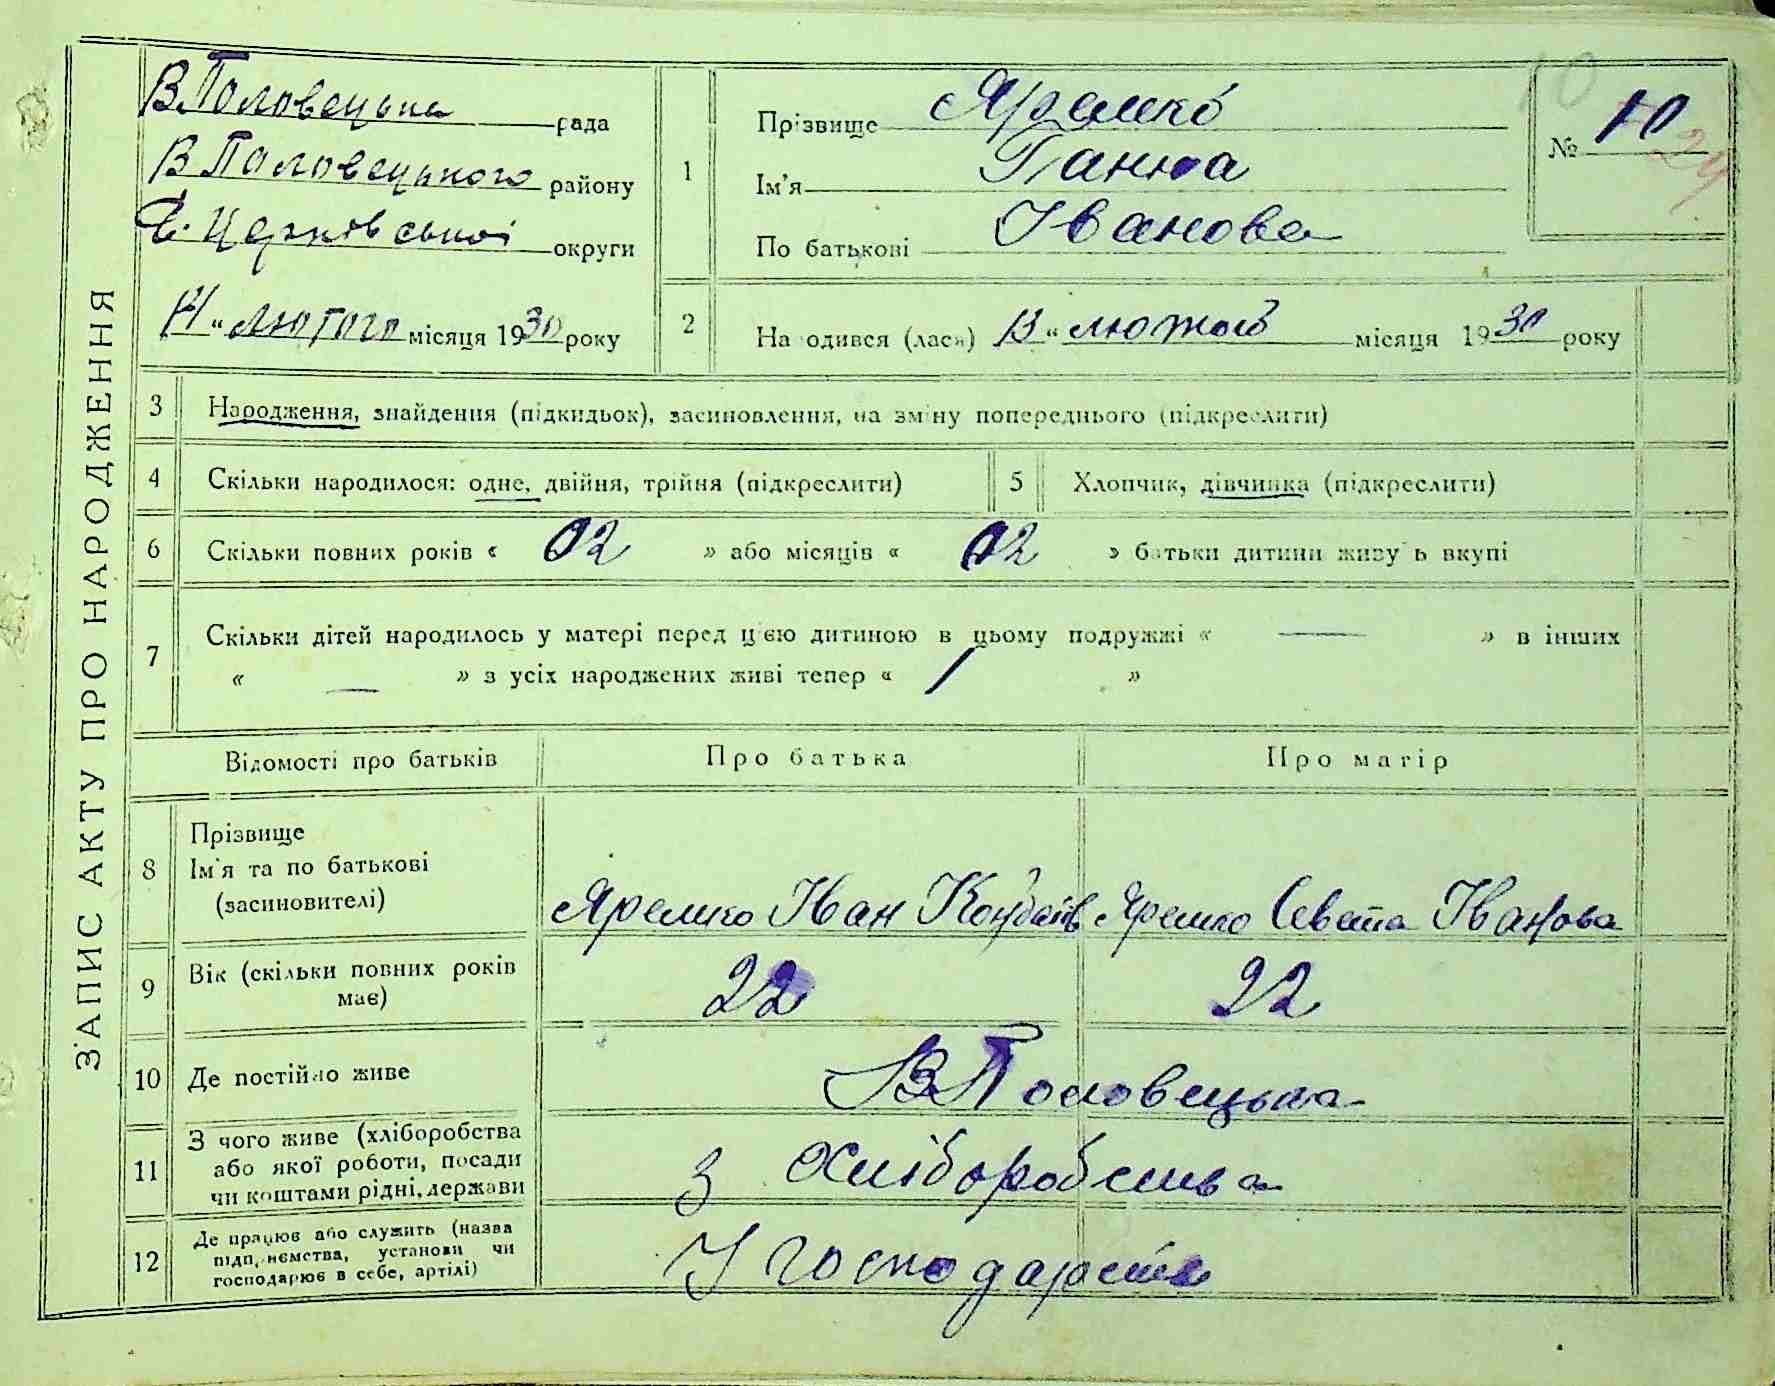 ЗАПИС АКТУ ПРО НАРОДЖЕННЯ
В Половецька рада
В Половецького району
Б. Церківської округи
лютого місяця 1930 року
1 Прізвище Яремко
Ім'я Ганна
По батькові Іванова
№ 10
24
2 На одився (лася) 13 " лютого місяця 1930 року
3 Народження, знайдення (підкидьок), засиновлення, на зміну попереднього (підкреслити)
4 Скільки народилося: одне, двійня, трійня (підкреслити) 5 Хлопчик, дівчинка (підкреслити)
6 Скільки повних років « 02 » або місяців « 02 » батьки дитини живу ь вкупі
7 Скільки дітей народилось у матері перед цією дитиною в цьому подружжі « — » в інших
« — » з усіх народжених живі тепер « »
Відомості про батьків Про батька Про матір
8 Прізвище
Ім'я та по батькові
(засиновителі)
Яремко Іван Яремко Іванова
9 Вік (скільки повних років
має)
22 22
10 Де постійно живе В Половецька
11 З чого живе (хліборобства
або якої роботи, посади
чи коштами рідні, держави
з Хліборобства
12 Де працює або служить (назва
підприємства, установи чи
господарює в себе, артілі)
У господарстві